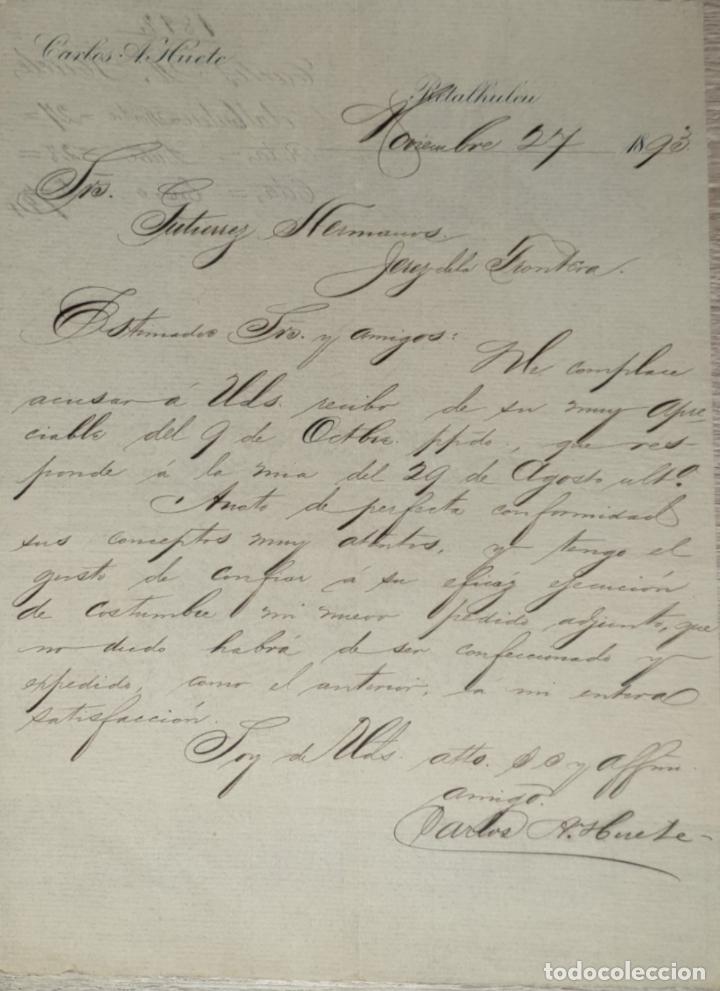 Carlos A. Huete
Retalhuleu
Noviembre 27 1893.
Srs.
Gutierrez Hermanos.
Jerez de la Frontera.
Estimados Srs. y amigos:
Me complace
acusar á Uds. recibo de su muy apre-
ciable del 9 de Octbre. ppdo., que res-
ponde á la mia del 29 de Agosto ulto.
Anoto de perfecta conformidad
sus conceptos muy attntos, y tengo el
gusto de confiar á su eficáz ejecución
de costumbre mi nuevo pedido adjunto, que
no dudo habrá de ser confeccionado y
eppedido, como el anterior, á mi entera
satisfacción.
Soy de Uds. atto. s s y affmo.
amigo.
Carlos A. Huete
todocoleccion
todocoleccion.net